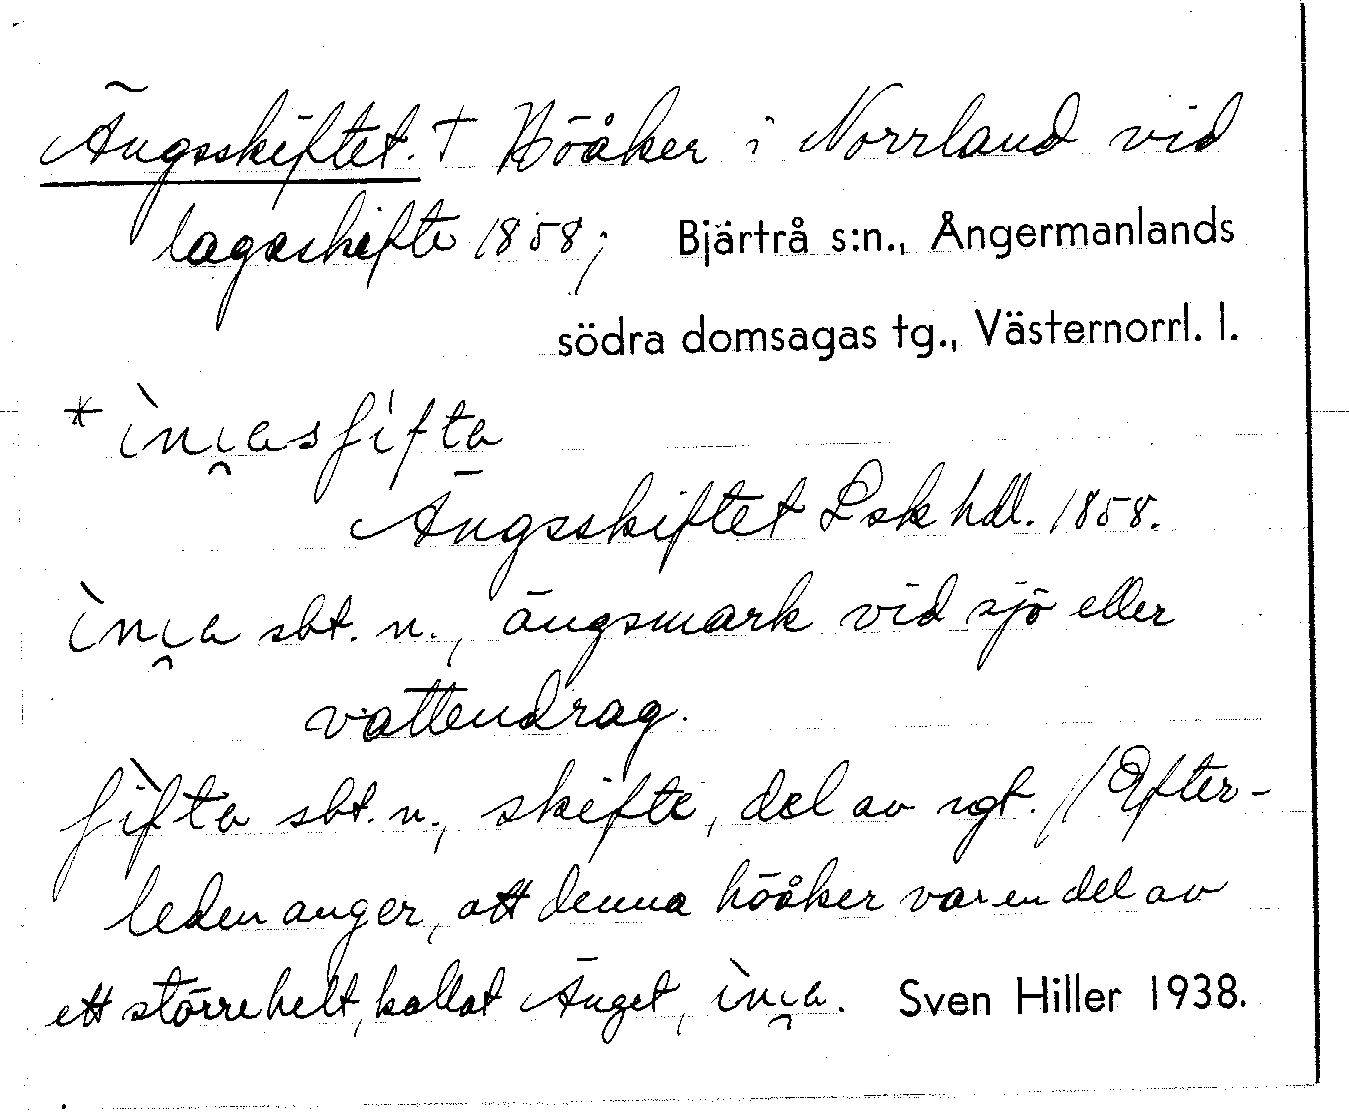 Ängsskiftet. † Höåker i Norrland vid
lagaskifte 1858; Bjärtrå s:n., Ångermanlands
södra domsagas tg., Västernorrl. l.
Ängsskiftet Lsk hdl. 1858.
sbt. n., ängsmark vid sjö eller
vattendrag.
sbt. n., skifte, del av ngt. // Efter-
leden anger, att denna höåker var en del av
ett större helt, kallat Änget, Sven Hiller 1938.